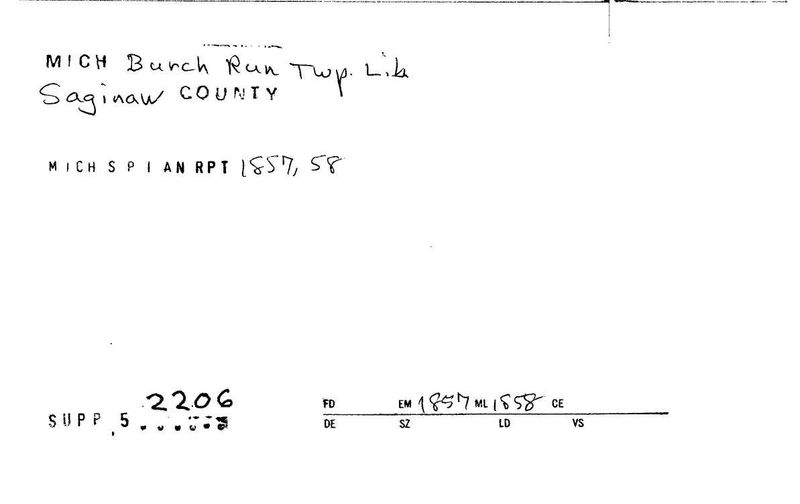 MICH Burch Run Twp. Lib
Saginaw COUNTY
MICH S P I AN RPT 1857, 58
2206
SUPP 5
FD EM 1857 ML 1858 CE
DE SZ LD VS